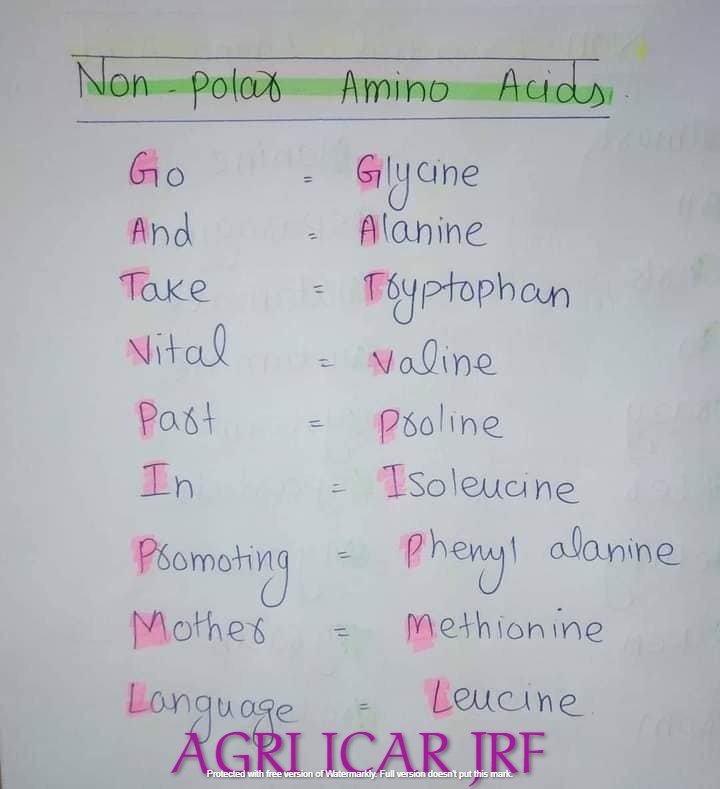 Non-polar Amino Acids.
Go = Glycine
And = Alanine
Take = Tryptophan
Vital = Valine
Part = Proline
In = Isoleucine
Promoting = Phenyl alanine
Mother = Methionine
Language = Leucine
AGRI ICAR JRF
Protected with free version of Watermarkly. Full version doesn't put this mark.